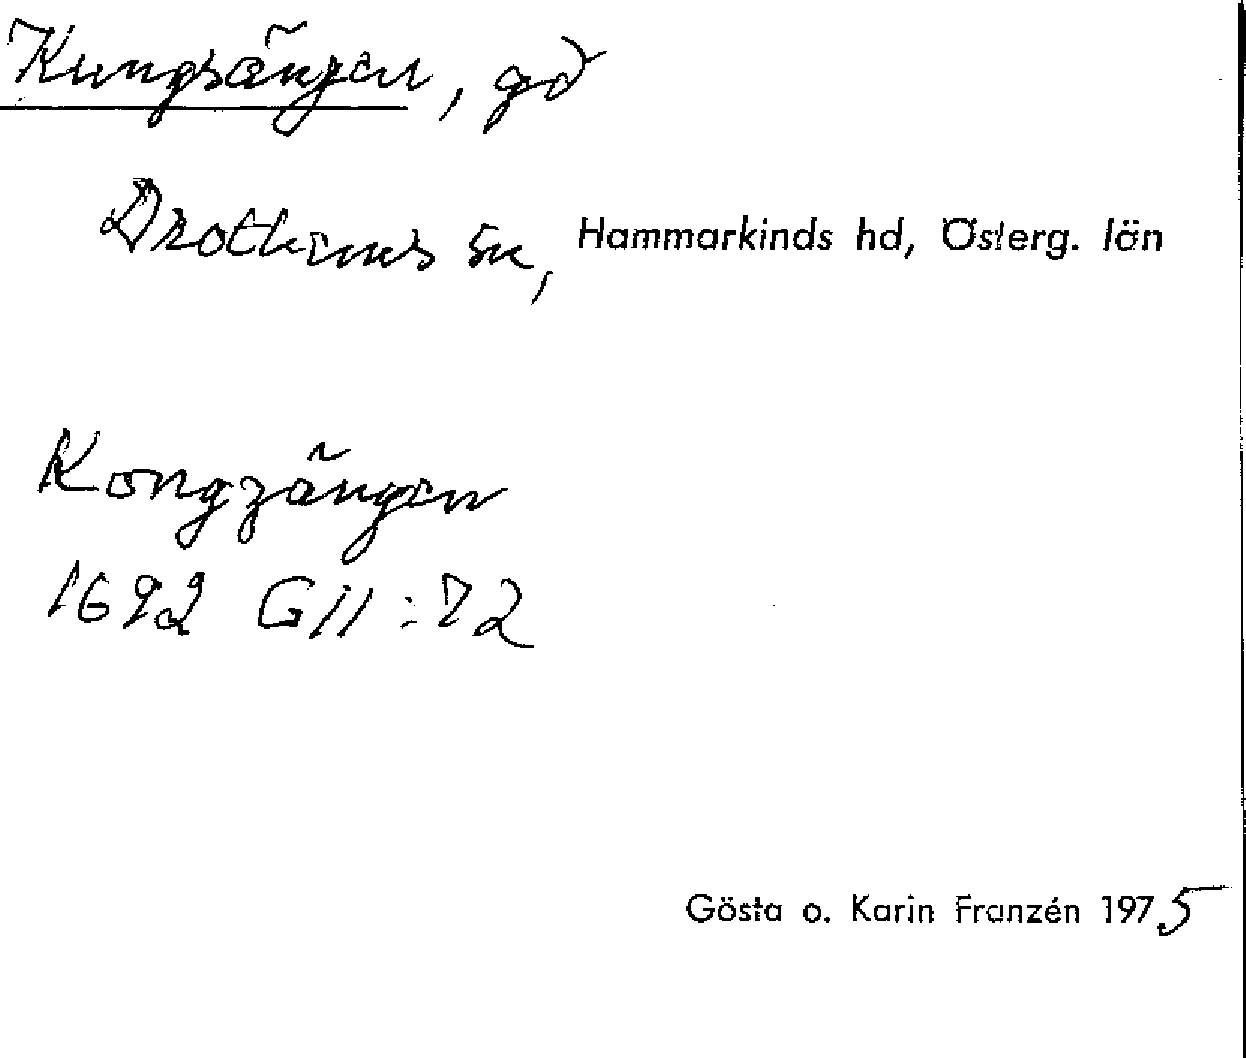 Kungsängen, gd
Drothems sn, Hammarkinds hd, Österg. län
Kongzängen
1692 G II:72
Gösta o. Karin Franzén 1975